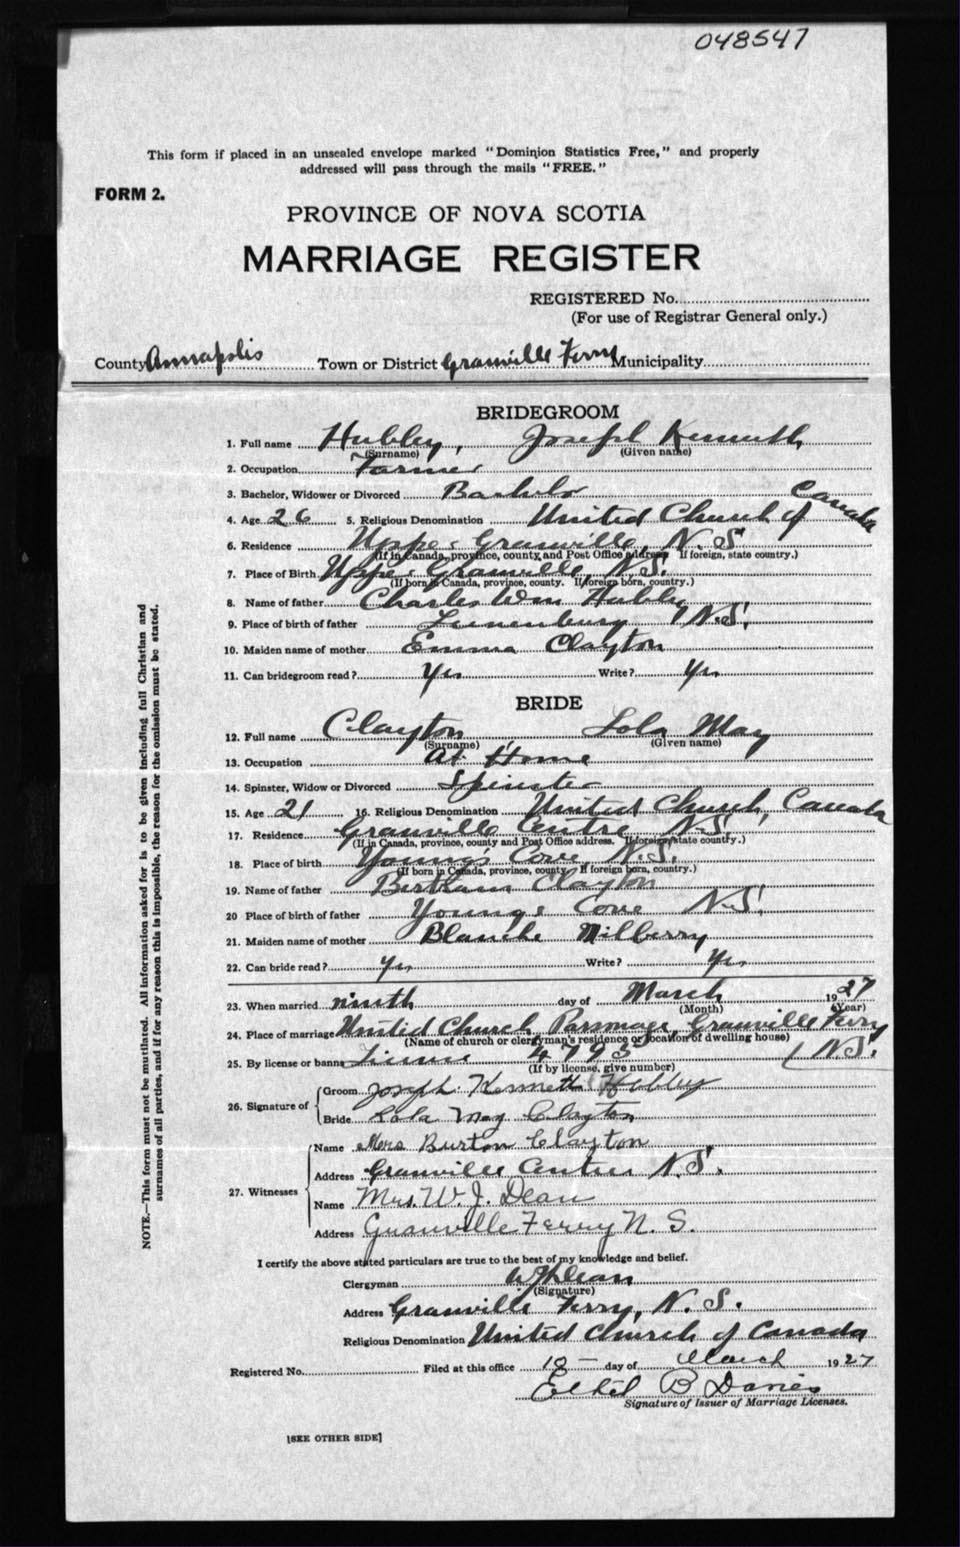 048547
This form if placed in an unsealed envelope marked "Dominion Statistics Free," and properly
addressed will pass through the mails "FREE."
FORM 2.
PROVINCE OF NOVA SCOTIA
MARRIAGE REGISTER
REGISTERED No.
(For use of Registrar General only.)
County Annapolis Town or District Granville Ferry Municipality
BRIDEGROOM
1. Full name Hubley, Joseph Kenneth
(Surname) (Given name)
2. Occupation Farmer
3. Bachelor, Widower or Divorced Bachelor
4. Age 26 5. Religious Denomination United Church of Canada
6. Residence Upper Granville, N.S.
(If in Canada, province, county, and Post Office address. If foreign, state country.)
7. Place of Birth Upper Granville, N.S.
(If born in Canada, province, county. If foreign born, country.)
8. Name of father Charles Wm Hubley
9. Place of birth of father Lunenburg N.S.
10. Maiden name of mother Emma Clayton
11. Can bridegroom read? Yes Write? Yes
BRIDE
12. Full name Clayton Lola May
(Surname) (Given name)
13. Occupation At Home
14. Spinster, Widow or Divorced Spinster
15. Age 21 16. Religious Denomination United Church, Canada
17. Residence Granville Centre N.S.
(If in Canada, province, county and Post Office address. If foreign, state country.)
18. Place of birth Young's Cove, N.S.
(If born in Canada, province, county. If foreign born, country.)
19. Name of father Clayton
20 Place of birth of father Young's Cove N.S.
21. Maiden name of mother Blanche Milberry
22. Can bride read? Yes Write? Yes
23. When married ninth day of March 1927
(Month) (Year)
24. Place of marriage United Church Parsonage, Granville Ferry N.S.
(Name of church or clergyman's residence or location of dwelling house)
25. By license or banns License 4793
(If by license, give number)
26. Signature of Groom Joseph Kenneth Hubley
Bride Lola May Clayton
27. Witnesses Name Mrs Burton Clayton
Address Granville Centre N.S.
Name Mrs. W. J. Dean
Address Granville Ferry N. S.
I certify the above stated particulars are true to the best of my knowledge and belief.
Clergyman W J Dean
(Signature)
Address Granville Ferry, N. S.
Religious Denomination United Church of Canada
Registered No. Filed at this office 18 day of March 1927
Ethel B Davies
Signature of Issuer of Marriage Licenses.
[SEE OTHER SIDE]
NOTE.—This form must not be mutilated. All information asked for is to be given including full Christian and
surnames of all parties, and if for any reason this is impossible, the reason for the omission must be stated.